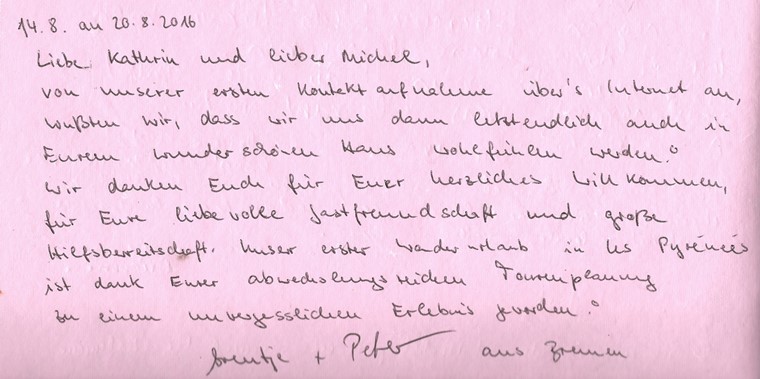 14.8. au 20.8.2016
Liebe Kathrin und lieber Michel,
von unserer ersten Kontaktaufnahme über's Internet an,
wußten wir, dass wir uns dann letztendlich auch in
Eurem wunderschönen Haus wohlfühlen werden.
Wir danken Euch für Euer herzliches Willkommen,
für Eure liebevolle Gastfreundschaft und große
Hilfsbereitschaft. Unser erster Wanderurlaub in les Pyrénées
ist dank Eurer abwechslungsreichen Tourenplanung
zu einem unvergesslichen Erlebnis geworden.
+ Peter aus Bremen